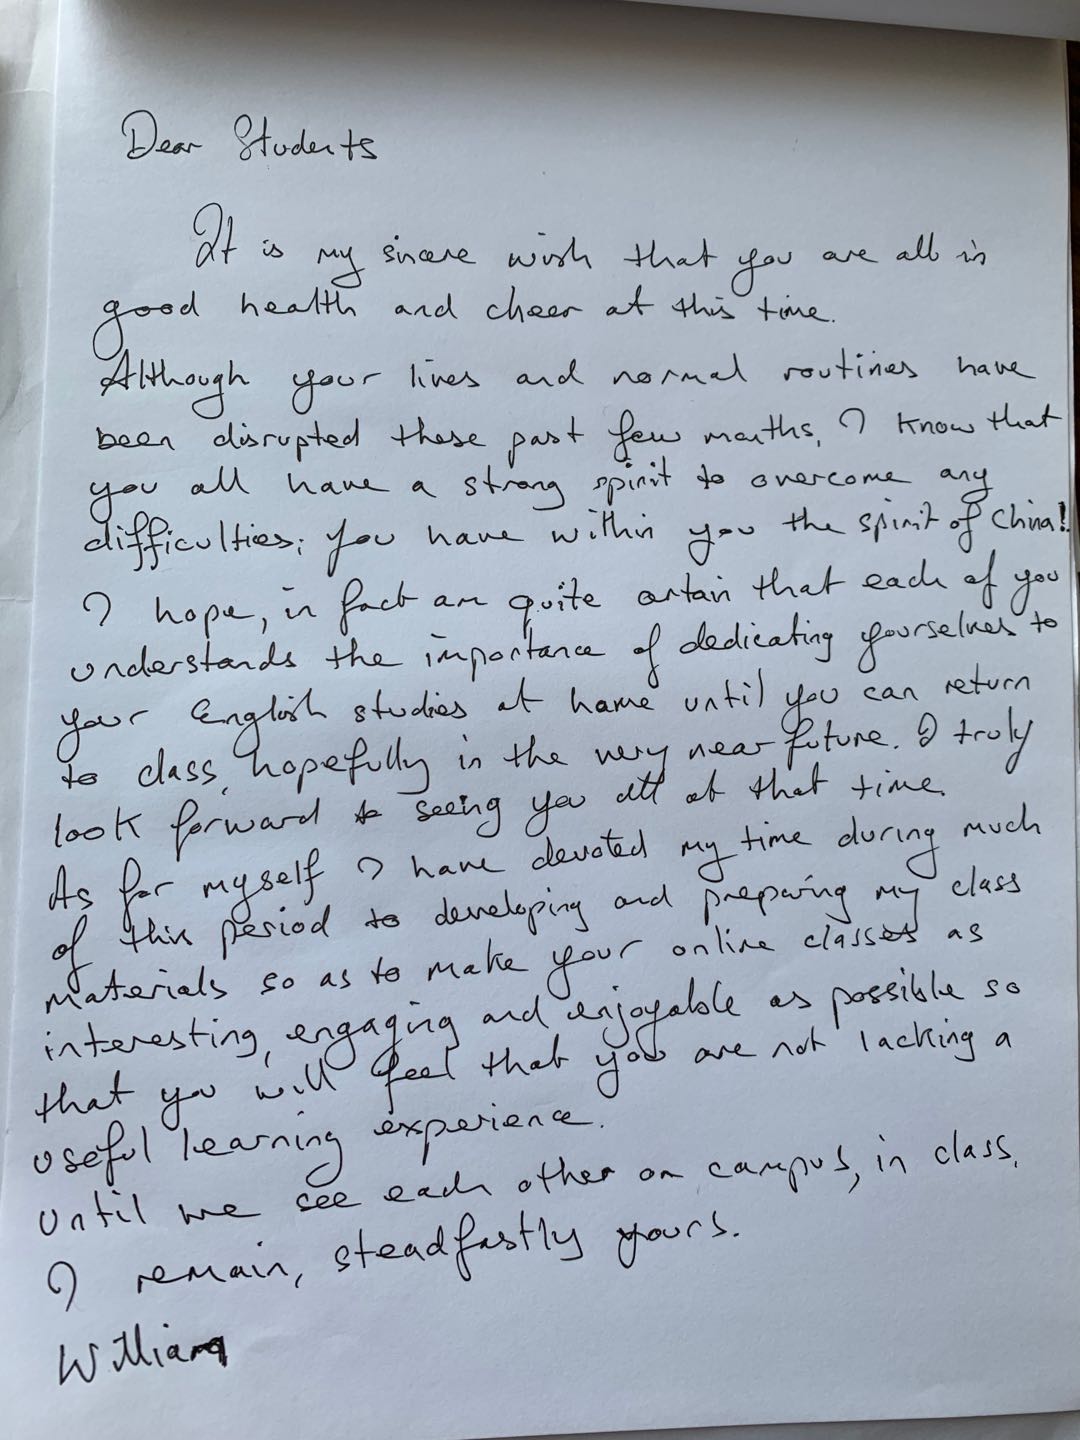 Dear Students
It is my sincere wish that you are all in
good health and cheer at this time.
Although your lives and normal routines have
been disrupted these past few months, I know that
you all have a strong spirit to overcome any
difficulties; you have within you the spirit of China!
I hope, in fact am quite certain that each of you
understands the importance of dedicating yourselves to
your English studies at home until you can return
to class, hopefully in the very near future. I truly
look forward to seeing you all at that time.
As for myself I have devoted my time during much
of this period to developing and preparing my class
materials so as to make your online classes as
interesting, engaging and enjoyable as possible so
that you will feel that you are not lacking a
useful learning experience.
Until we see each other on campus, in class,
I remain, steadfastly yours.
William